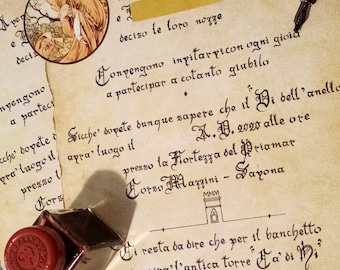 e
deciso le loro nozze
Convengono invitarvi con ogni gioia
a partecipar a cotanto giubilo
Sicché dovete dunque sapere che il "Dì dell'anello"
avrà luogo il A. D. 2020 alle ore
presso la Fortezza del Priamar
Corso Mazzini - Savona
Ci resta da dire che per il banchetto
l'antica torre "Ca' di
e B
deciso
Convengono
a partecipar
Sicché dovete
avrà luogo il
presso
Corso
Ci resta